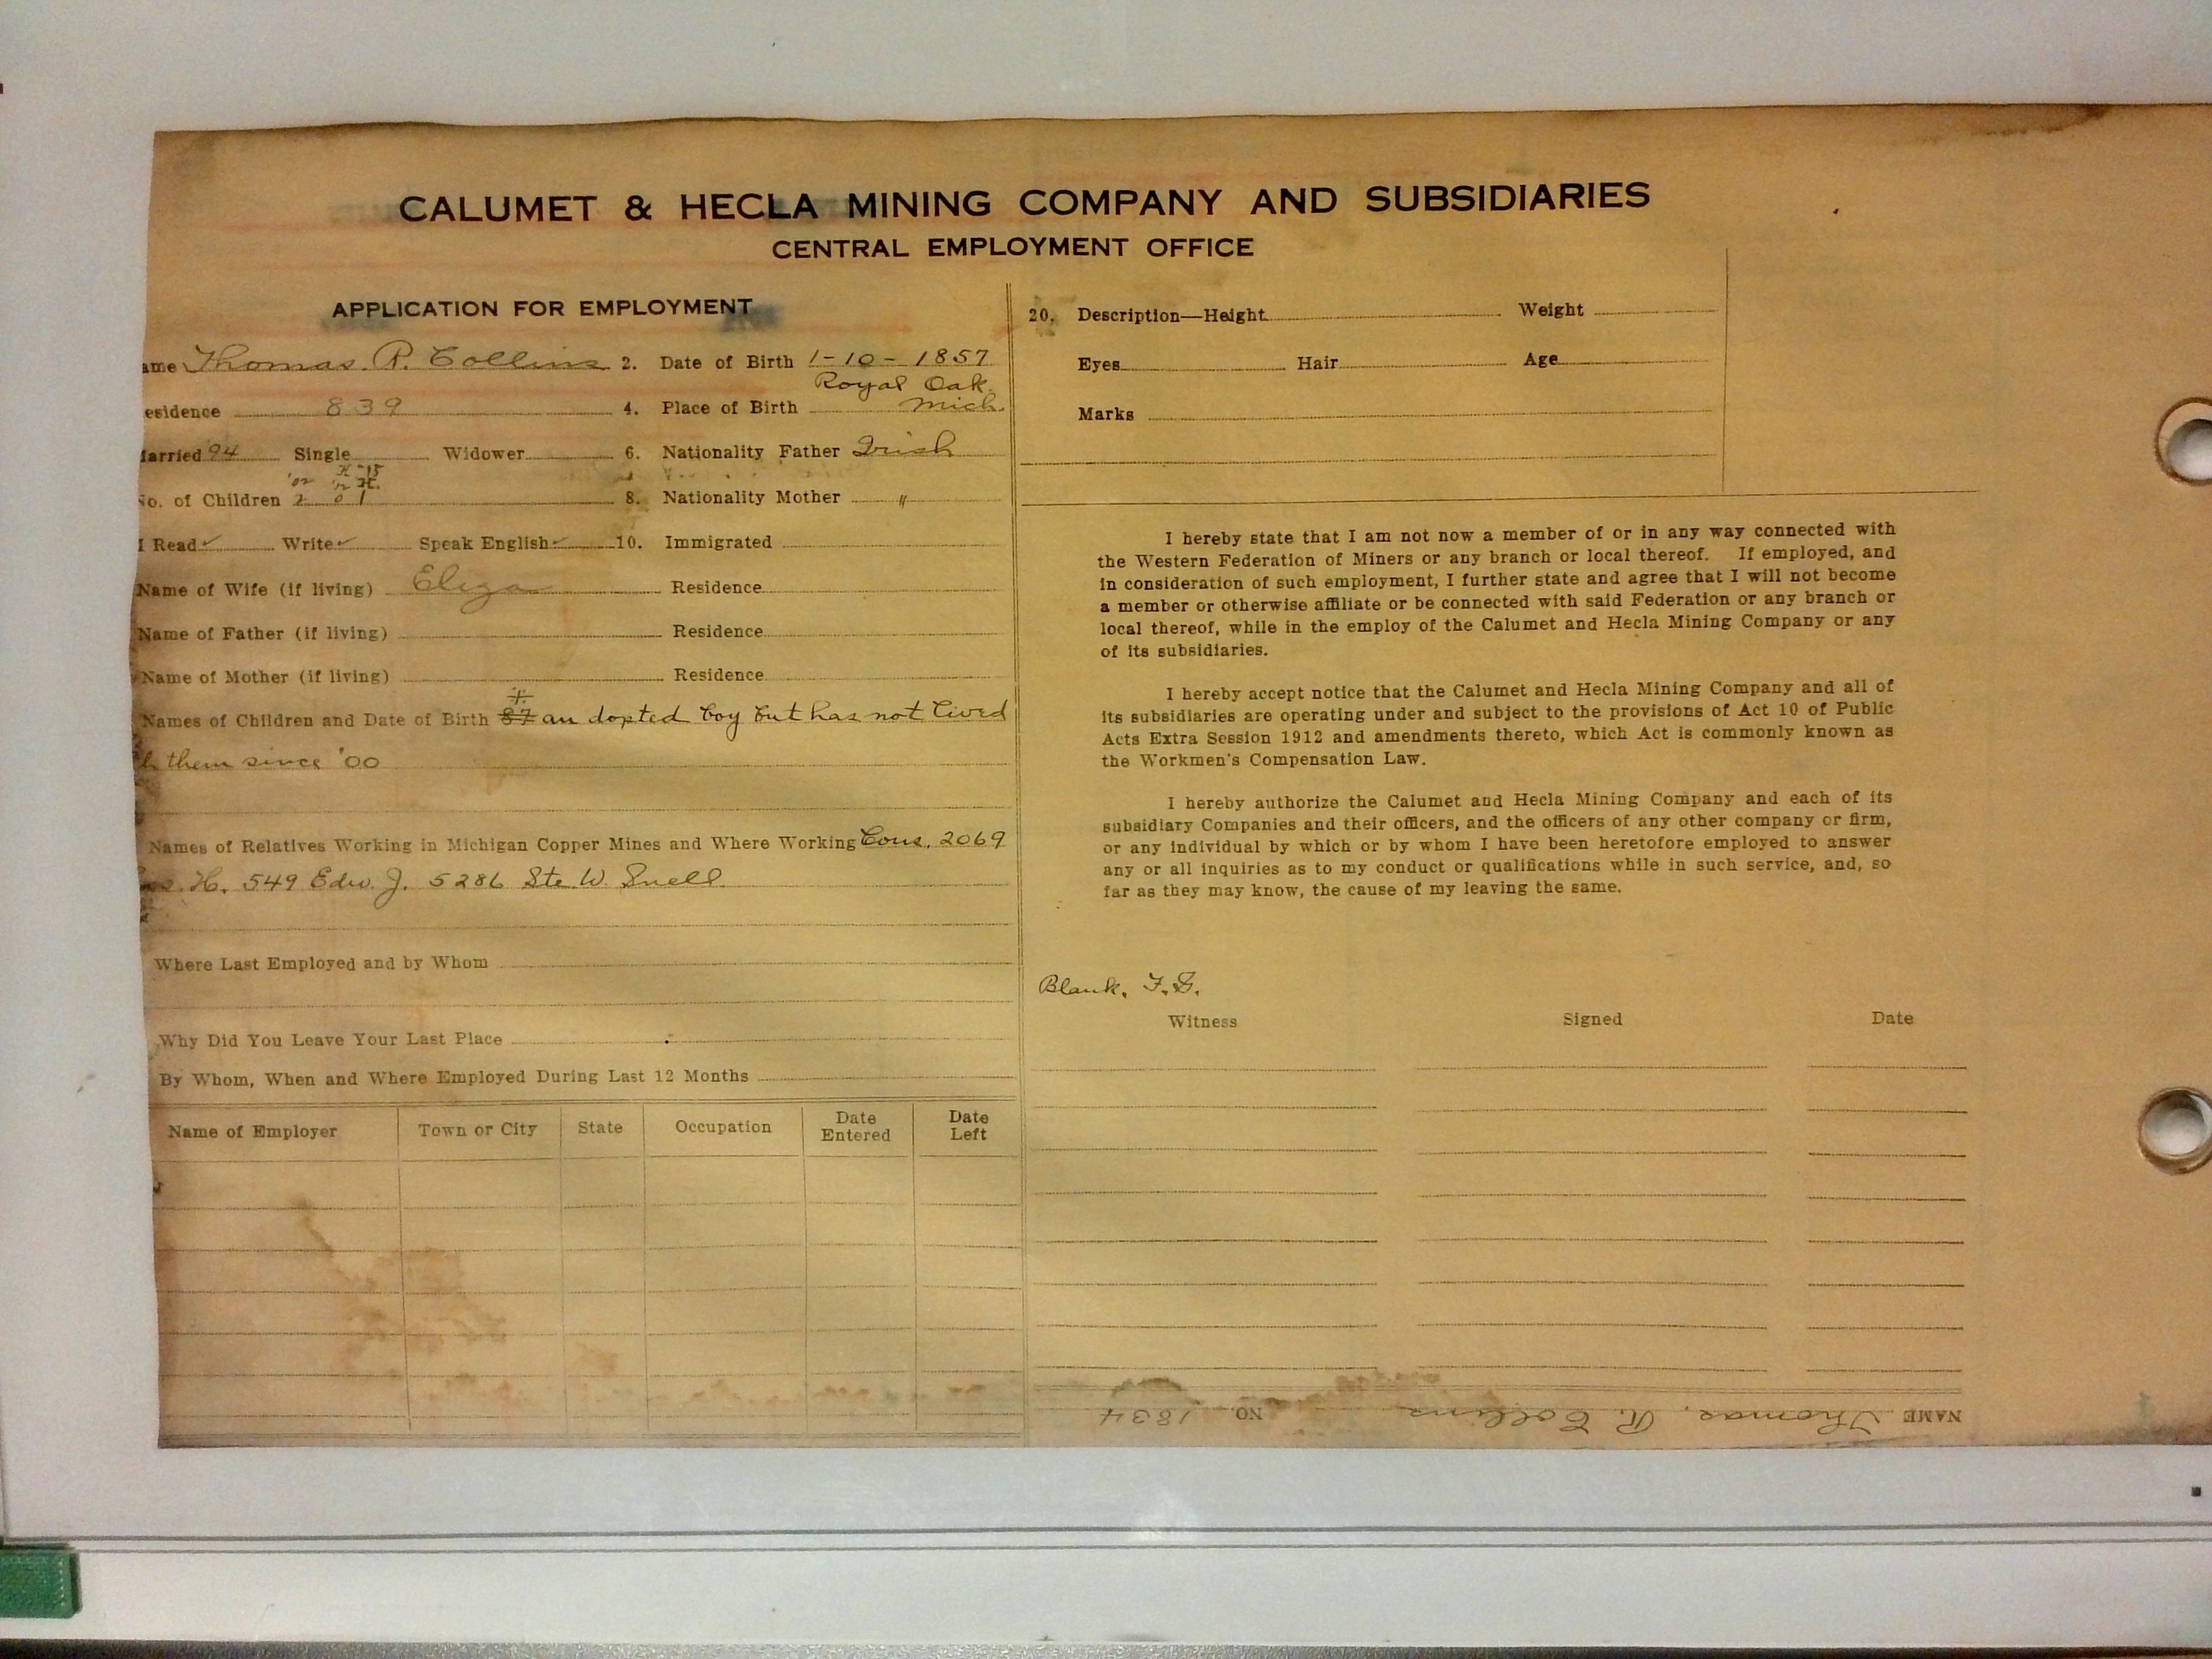 CALUMET & HECLA MINING COMPANY AND SUBSIDIARIES
CENTRAL EMPLOYMENT OFFICE
APPLICATION FOR EMPLOYMENT
ame Thomas. R. Collins 2. Date of Birth 1-10-1857
Royal Oak
esidence 839 4. Place of Birth Mich.
arried 94 Single Widower 6. Nationality Father Irish
No. of Children 2 0 1 8. Nationality Mother "
I Read ✓ Write ✓ Speak English ✓ 10. Immigrated
Name of Wife (if living) Eliza Residence
Name of Father (if living) Residence
Name of Mother (if living) Residence
Names of Children and Date of Birth 87 an dopted boy but has not lived
h them since '00
Names of Relatives Working in Michigan Copper Mines and Where Working Cons. 2069
s. H. 549 Edw. J. 5286 Ste W. Snell
Where Last Employed and by Whom
Why Did You Leave Your Last Place
By Whom, When and Where Employed During Last 12 Months
Name of Employer Town or City State Occupation Date Entered Date Left
20. Description—Height Weight
Eyes Hair Age
Marks
I hereby state that I am not now a member of or in any way connected with
the Western Federation of Miners or any branch or local thereof. If employed, and
in consideration of such employment, I further state and agree that I will not become
a member or otherwise affiliate or be connected with said Federation or any branch or
local thereof, while in the employ of the Calumet and Hecla Mining Company or any
of its subsidiaries.
I hereby accept notice that the Calumet and Hecla Mining Company and all of
its subsidiaries are operating under and subject to the provisions of Act 10 of Public
Acts Extra Session 1912 and amendments thereto, which Act is commonly known as
the Workmen's Compensation Law.
I hereby authorize the Calumet and Hecla Mining Company and each of its
subsidiary Companies and their officers, and the officers of any other company or firm,
or any individual by which or by whom I have been heretofore employed to answer
any or all inquiries as to my conduct or qualifications while in such service, and, so
far as they may know, the cause of my leaving the same.
Blank. F.S.
Witness Signed Date
NAME Thomas. R. Collins NO. 1834